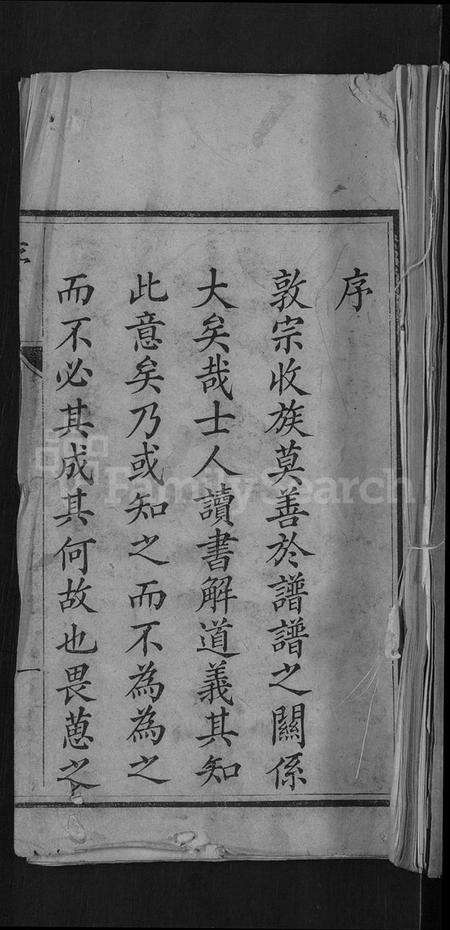 序
敦宗收族莫善於譜譜之關係
大矣哉士人讀書解道義其知
此意矣乃或知之而不為為之
而不必其成其何故也畏葸之
一
FamilySearch